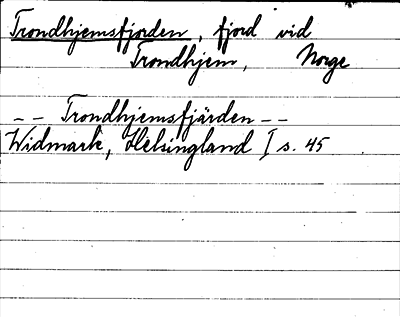 Trondhjemsfjorden, fjord vid
Trondhjem, Norge
-- Trondhjemsfjärden --
Widmark, Helsingland I s. 45